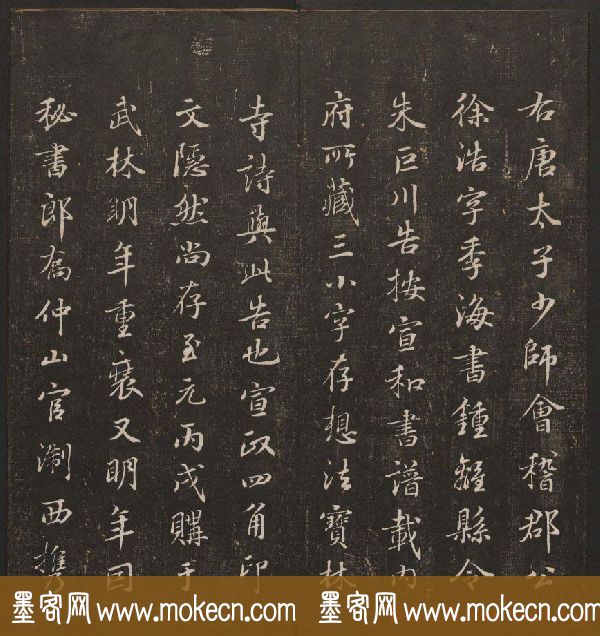 右唐太子少師會稽郡公
徐浩字季海書鍾離縣令
朱巨川告按宣和書譜載内
府所藏三小字存想法寶林
寺詩與此告也宣政四角印
文隱然尚存至元丙戌購于
武林明年重裝又明年同
秘書郎喬仲山官淛西携
墨客网 www.mokecn.com 墨客网 www.mokecn.com